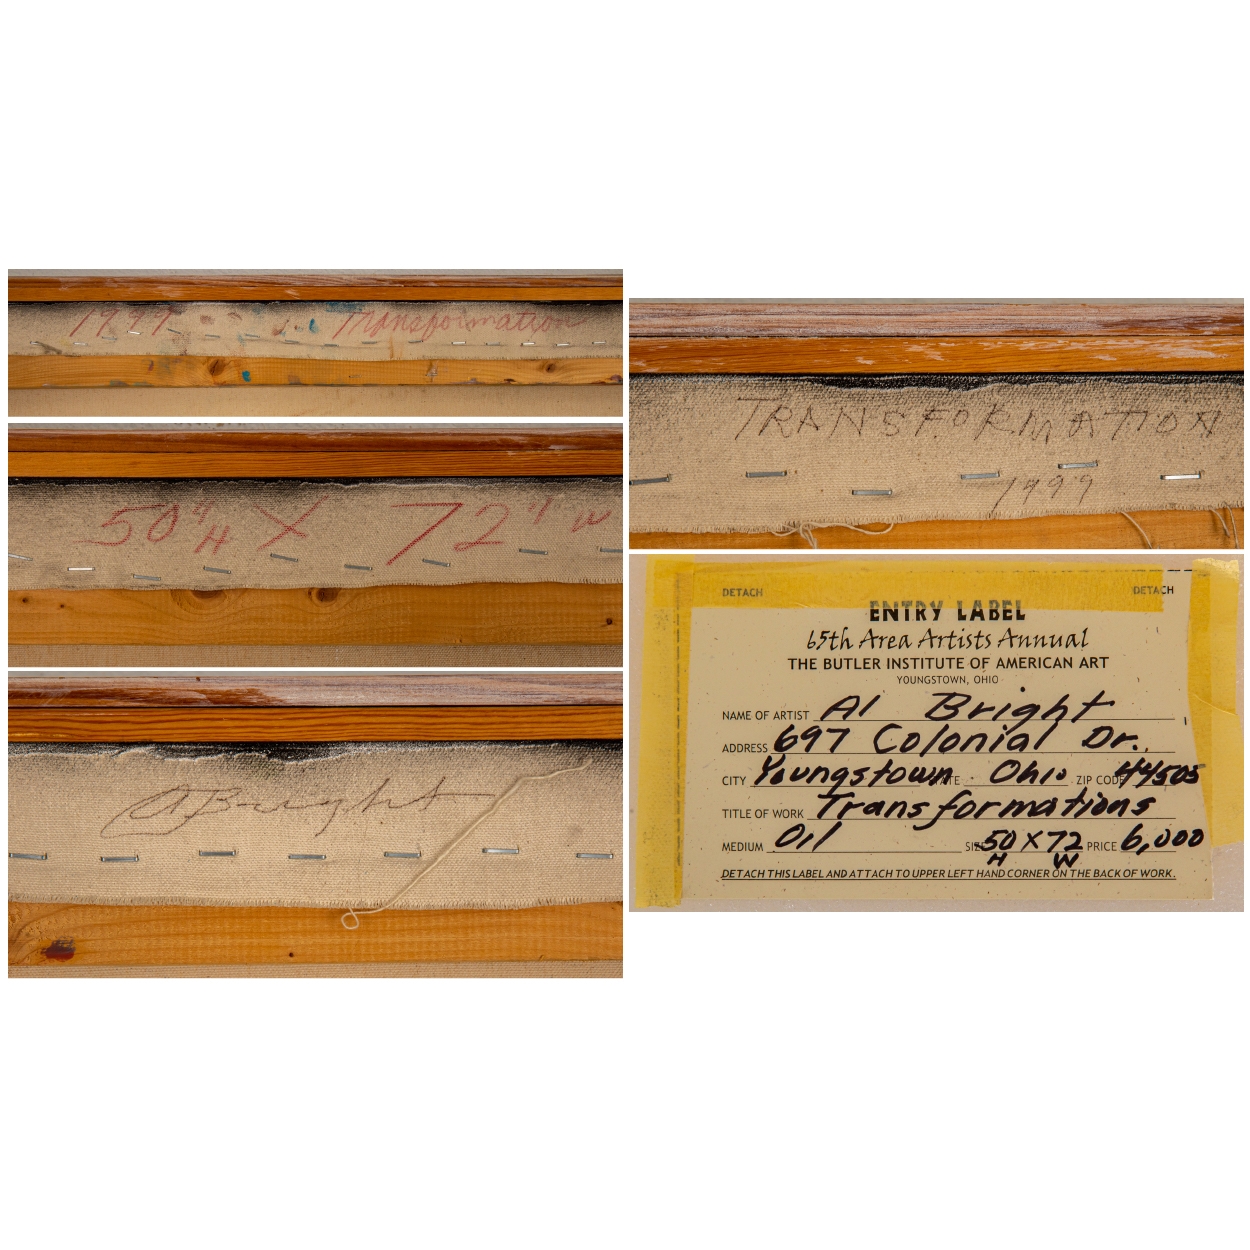 1999 Transformation
50" H X 72" W
A Bright
TRANSFORMATION
1999
DETACH DETACH
ENTRY LABEL
65th Area Artists Annual
THE BUTLER INSTITUTE OF AMERICAN ART
YOUNGSTOWN, OHIO
NAME OF ARTIST Al Bright
ADDRESS 697 Colonial Dr.
CITY Youngstown STATE Ohio ZIP CODE 44505
TITLE OF WORK Transformations
MEDIUM Oil SIZE 50 X 72 PRICE 6,000
H W
DETACH THIS LABEL AND ATTACH TO UPPER LEFT HAND CORNER ON THE BACK OF WORK.